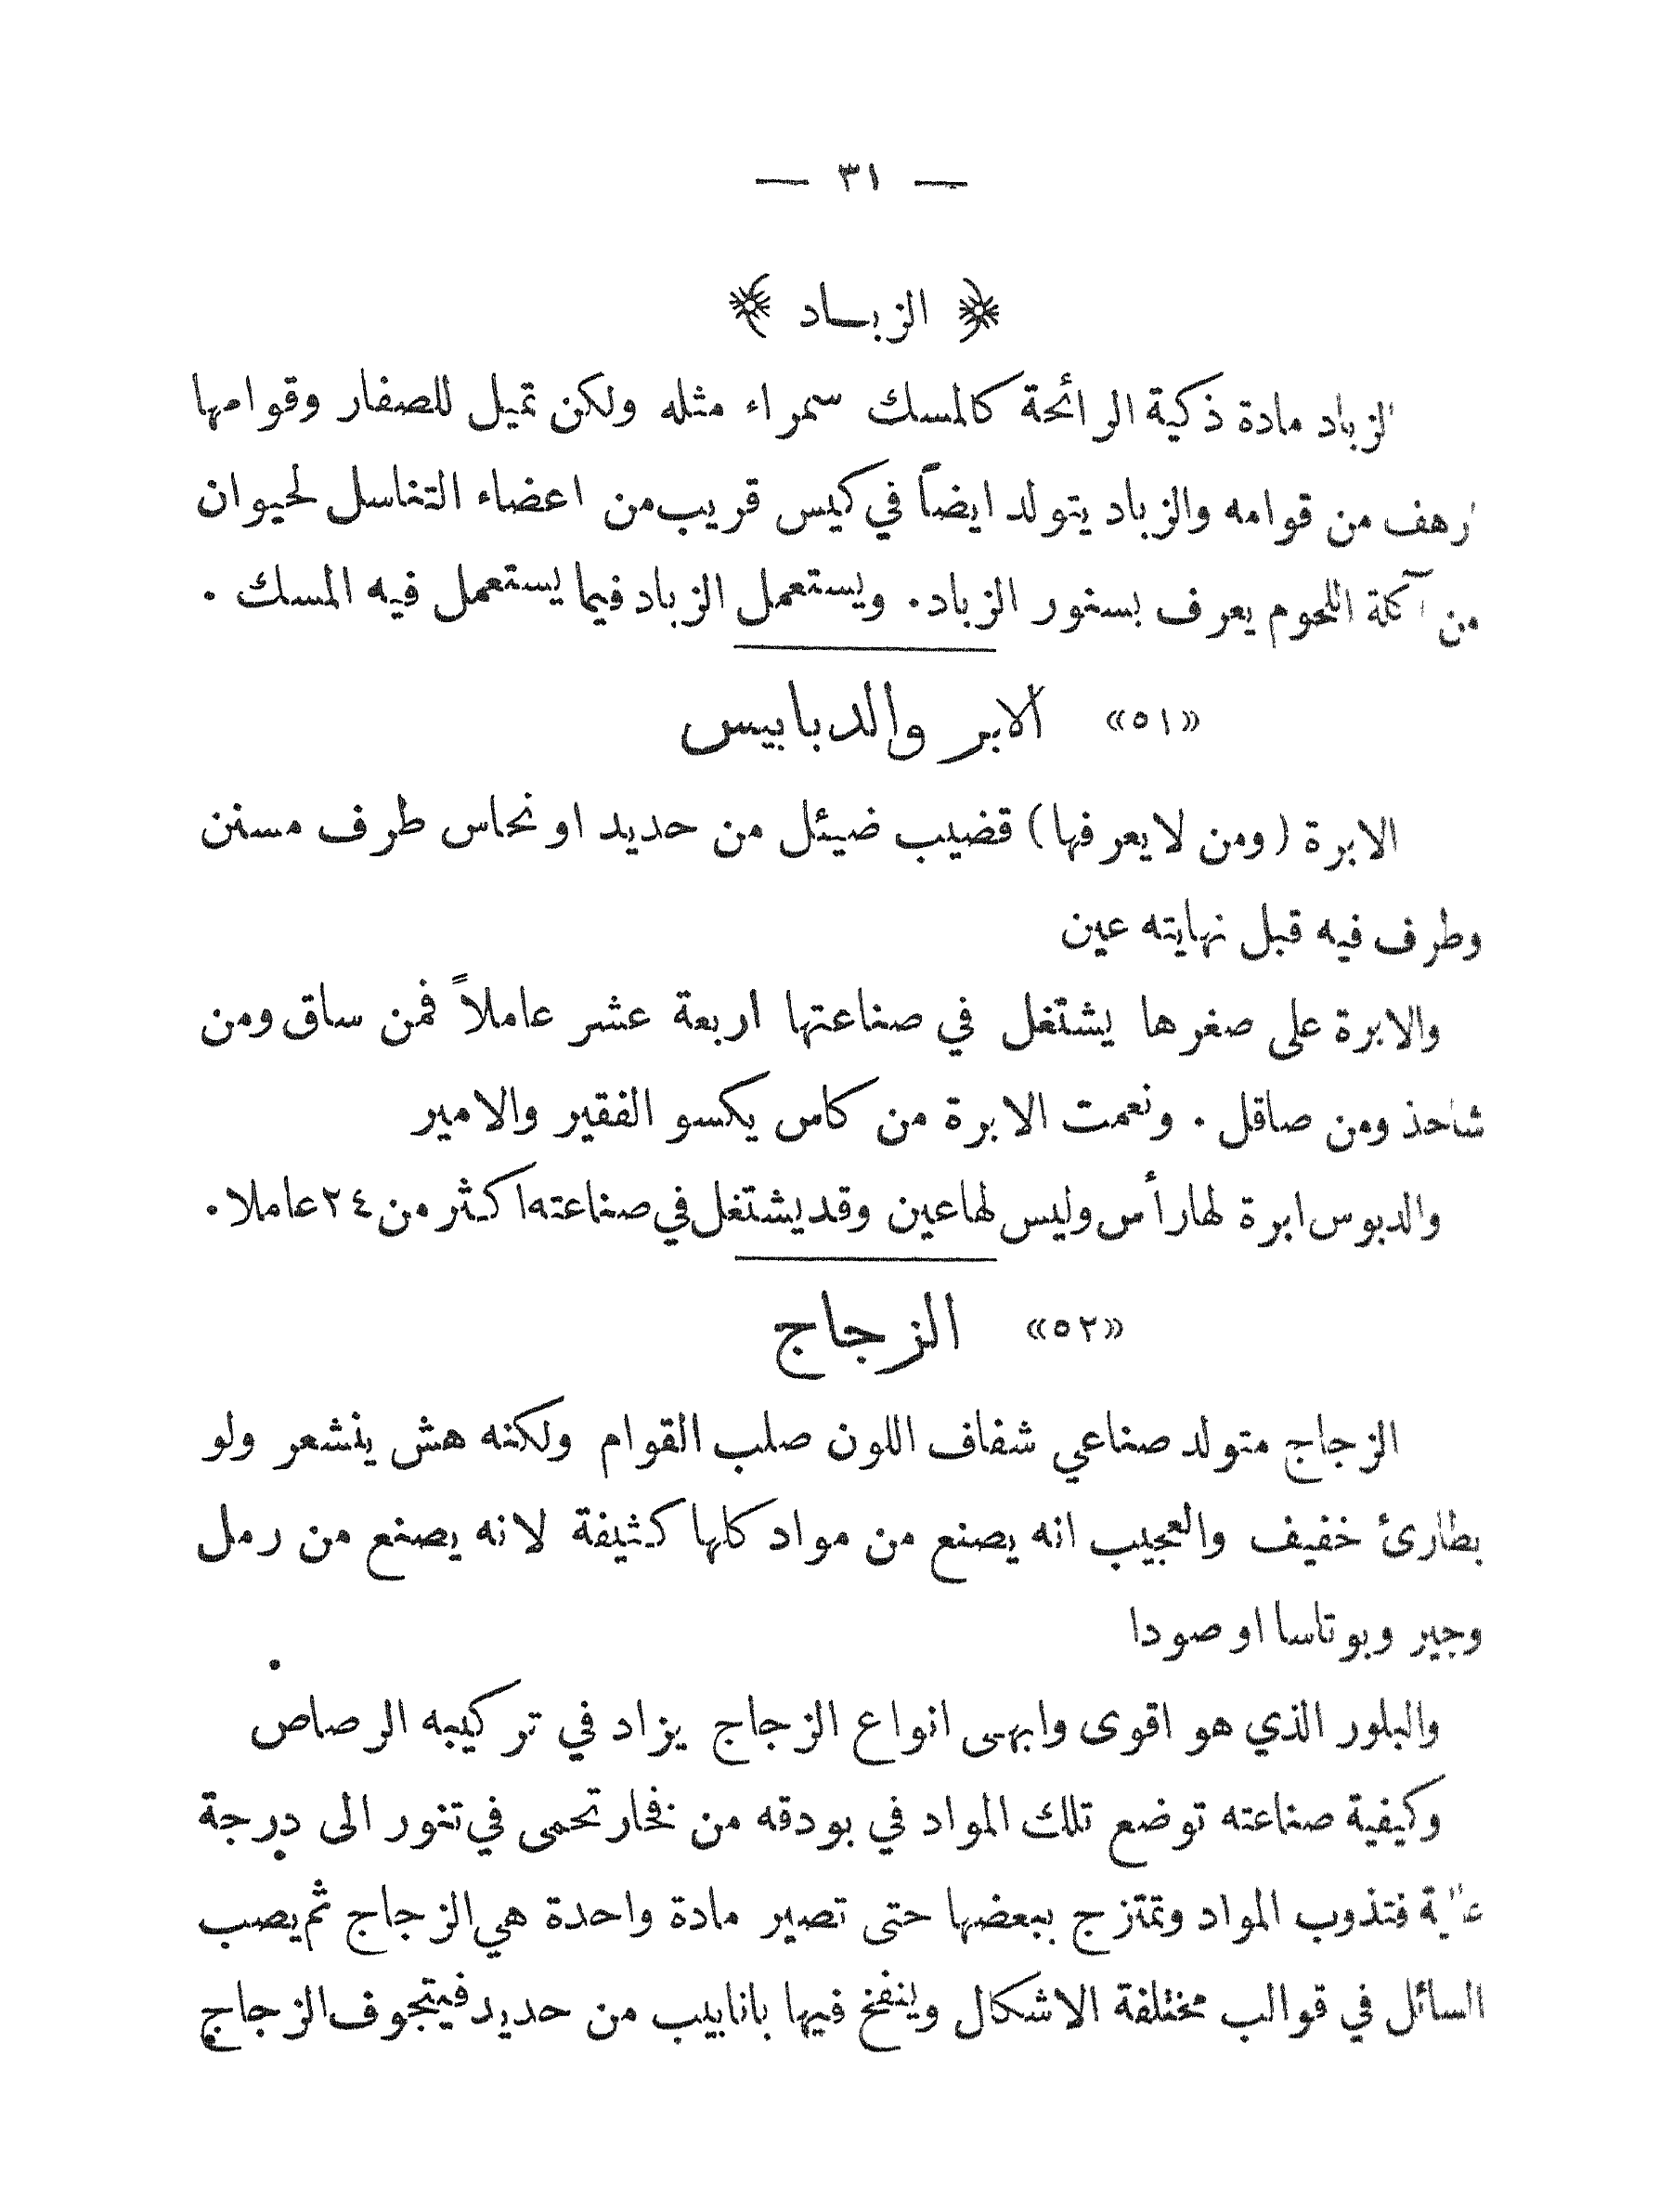 — ٣١ —
﴿ الزبــاد ﴾
الزباد مادة ذكية الرائحة كالمسك سمراء مثله ولكن تميل للصفار وقوامها
ارهف من قوامه والزباد يتولد ايضاً في كيس قريب من اعضاء التناسل لحيوان
من آكلة اللحوم يعرف بسنور الزباد. ويستعمل الزباد فيما يستعمل فيه المسك .
«٥١» الابر والدبابيس
الابرة (ومن لا يعرفها) قضيب ضيئل من حديد او نحاس طرف مسنن
وطرف فيه قبل نهايته عين
والابرة على صغرها يشتغل في صناعتها اربعة عشر عاملاً فمن ساق ومن
شاحذ ومن صاقل . ونعمت الابرة من كاس يكسو الفقير والامير
والدبوس ابرة لها رأس وليس لها عين وقد يشتغل في صناعته اكثر من ٢٤ عاملا.
«٥٢» الزجاج
الزجاج متولد صناعي شفاف اللون صلب القوام ولكنه هش ينشعر ولو
بطارئ خفيف والعجيب انه يصنع من مواد كلها كثيفة لانه يصنع من رمل
وجير وبوتاسا او صودا
والبلور الذي هو اقوى وابهى انواع الزجاج يزاد في تركيبه الرصاص
وكيفية صناعته توضع تلك المواد في بودقه من فخار تحمى في تنور الى درجة
عالية فتذوب المواد وتمتزج ببعضها حتى تصير مادة واحدة هي الزجاج ثم يصب
السائل في قوالب مختلفة الاشكال وينفخ فيها بانابيب من حديد فيتجوف الزجاج